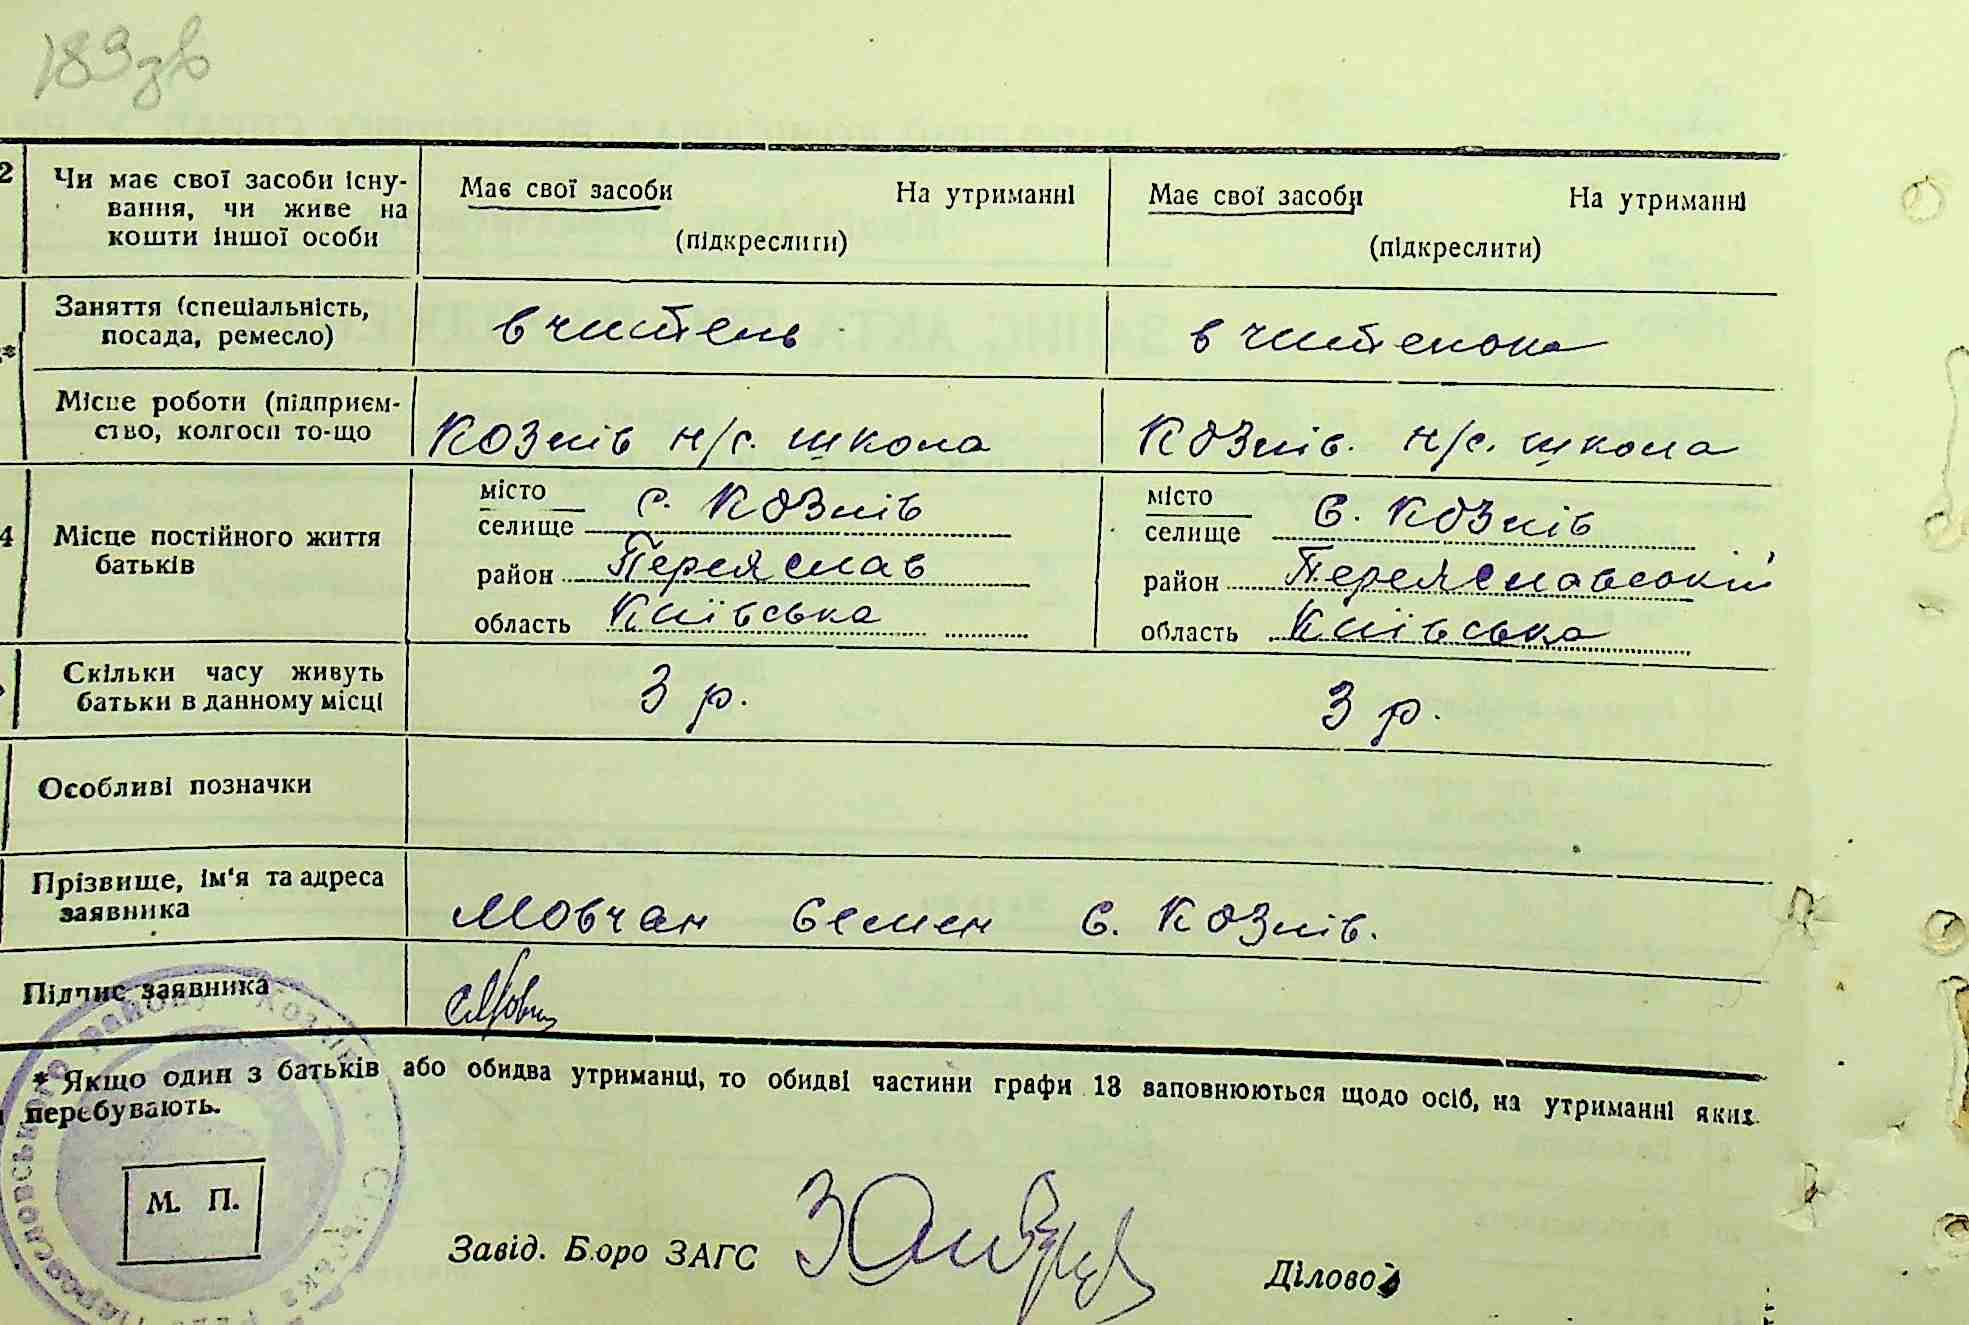 183 зв
2 Чи має свої засоби існу-
вання, чи живе на
кошти іншої особи
Має свої засоби На утриманні
(підкреслити)
Має свої засоби На утриманні
(підкреслити)
Заняття (спеціальність,
посада, ремесло)
вчитель
вчителька
Місце роботи (підприєм-
ство, колгосп то-що
Козлів н/с. школа
Козлів. н/с. школа
4 Місце постійного життя
батьків
місто
селище с. Козлів
район Переяслав
область Київська
місто
селище с. Козлів
район Переяславський
область Київська
Скільки часу живуть
батьки в данному місці
3 р.
3 р.
Особливі позначки
Прізвище, ім'я та адреса
заявника
Мовчан Семен с. Козлів.
Підпис заявника
* Якщо один з батьків або обидва утриманці, то обидві частини графи 13 заповнюються щодо осіб, на утриманні яких
перебувають.
М. П.
Завід. Бюро ЗАГС
Діловод